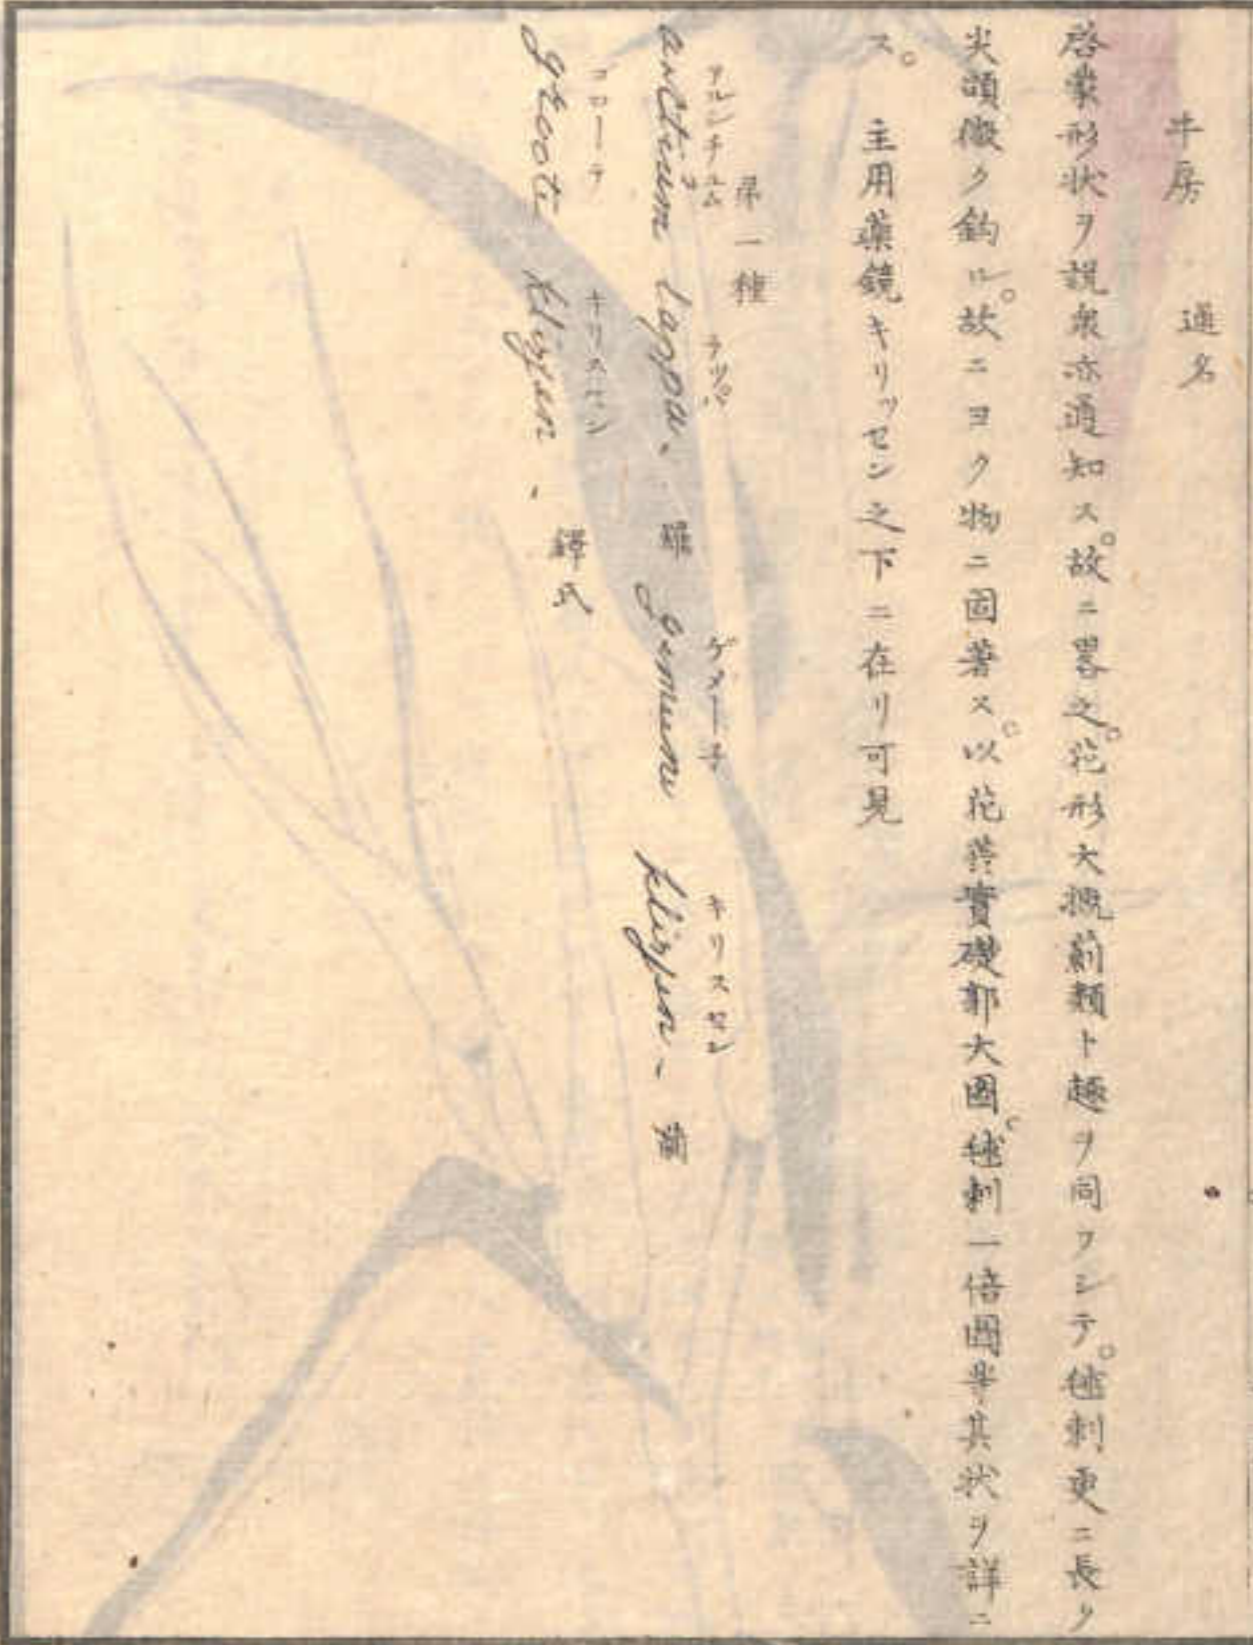 牛房　通名
啓蒙形状ヲ説衆亦通知ス。故ニ畧之。花形大概薊類ト趣ヲ同フシテ。𣮈刺更ニ長ク
尖頭微ク鈎ル。故ニヨク物ニ固著ス。以花蕚實礎郭大圖。𣮈刺一倍圖等其状ヲ詳ニ
ス。　主用薬鏡キリッセン之下ニ在リ可見
第一種
アルンチユム　ラッパ　ゲメー子　キリスセン
arctium lappa. 羅 gemeene klissen. 蘭
コローテ　キリスセン
groote klissen. 鐸氏